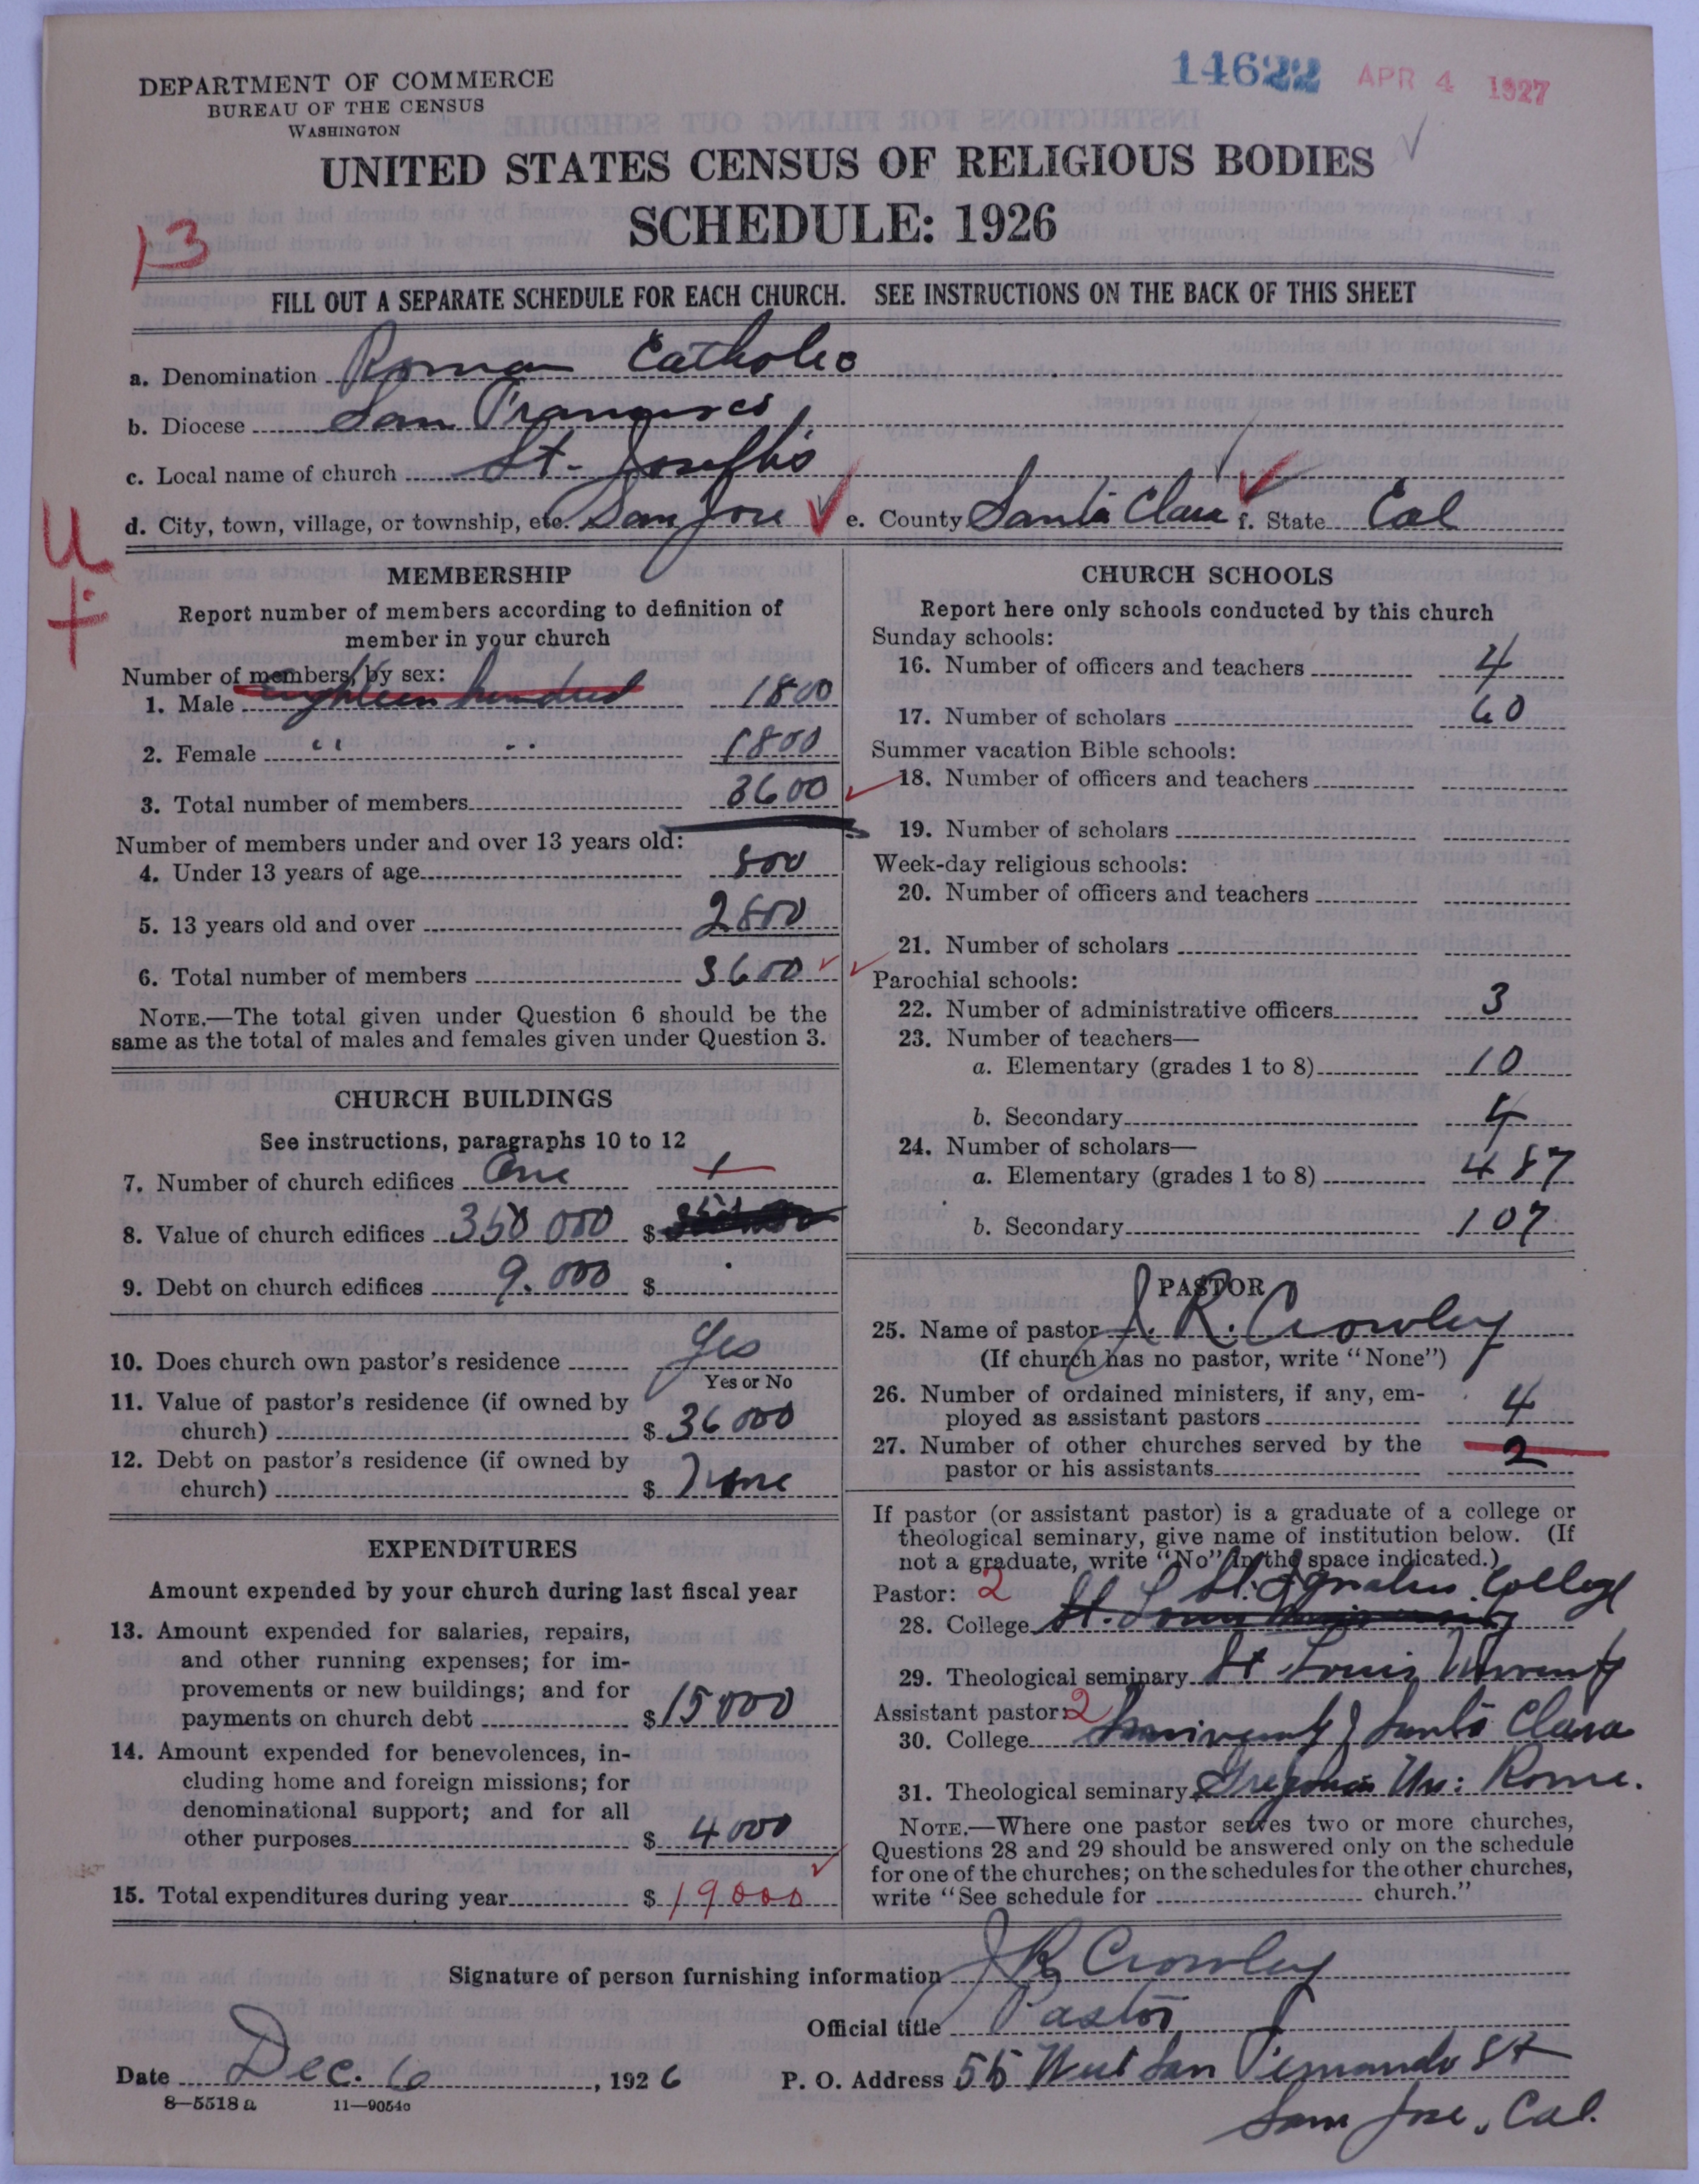 14622 APR 4 1927
DEPARTMENT OF COMMERCE
BUREAU OF THE CENSUS
WASHINGTON
UNITED STATES CENSUS OF RELIGIOUS BODIES
SCHEDULE: 1926
13
FILL OUT A SEPARATE SCHEDULE FOR EACH CHURCH. SEE INSTRUCTIONS ON THE BACK OF THIS SHEET
a. Denomination Roman Catholic
b. Diocese San Francisco
c. Local name of church St. Joseph's
d. City, town, village, or township, etc. San Jose e. County Santa Clara f. State Cal
U
+
MEMBERSHIP
Report number of members according to definition of
member in your church
Number of members, by sex:
1. Male Eighteen hundred 1800
2. Female " " 1800
3. Total number of members 3600
Number of members under and over 13 years old:
4. Under 13 years of age 800
5. 13 years old and over 2800
6. Total number of members 3600
NOTE.—The total given under Question 6 should be the
same as the total of males and females given under Question 3.
CHURCH BUILDINGS
See instructions, paragraphs 10 to 12
7. Number of church edifices One 1
8. Value of church edifices 350 000 $
9. Debt on church edifices 9.000 $
10. Does church own pastor's residence Yes
Yes or No
11. Value of pastor's residence (if owned by
church) $ 36000
12. Debt on pastor's residence (if owned by
church) $ None
EXPENDITURES
Amount expended by your church during last fiscal year
13. Amount expended for salaries, repairs,
and other running expenses; for im-
provements or new buildings; and for
payments on church debt $ 15000
14. Amount expended for benevolences, in-
cluding home and foreign missions; for
denominational support; and for all
other purposes $ 4000
15. Total expenditures during year $ 19000
CHURCH SCHOOLS
Report here only schools conducted by this church
Sunday schools:
16. Number of officers and teachers 4
17. Number of scholars 60
Summer vacation Bible schools:
18. Number of officers and teachers
19. Number of scholars
Week-day religious schools:
20. Number of officers and teachers
21. Number of scholars
Parochial schools:
22. Number of administrative officers 3
23. Number of teachers—
a. Elementary (grades 1 to 8) 10
b. Secondary 4
24. Number of scholars—
a. Elementary (grades 1 to 8) 487
b. Secondary 107
PASTOR
25. Name of pastor J. R. Crowley
(If church has no pastor, write "None")
26. Number of ordained ministers, if any, em-
ployed as assistant pastors 4
27. Number of other churches served by the
pastor or his assistants 2
If pastor (or assistant pastor) is a graduate of a college or
theological seminary, give name of institution below. (If
not a graduate, write "No" in the space indicated.)
Pastor: 2 St. Ignatius College
28. College St. Louis University
29. Theological seminary St Louis University
Assistant pastor: 2
30. College University of Santa Clara
31. Theological seminary Gregorian Uni: Rome.
NOTE.—Where one pastor serves two or more churches,
Questions 28 and 29 should be answered only on the schedule
for one of the churches; on the schedules for the other churches,
write "See schedule for church."
Signature of person furnishing information J R Crowley
Official title Pastor
Date Dec. 6, 1926 P. O. Address 55 West San Fernando St
San Jose, Cal.
8—5518 a 11—9054c